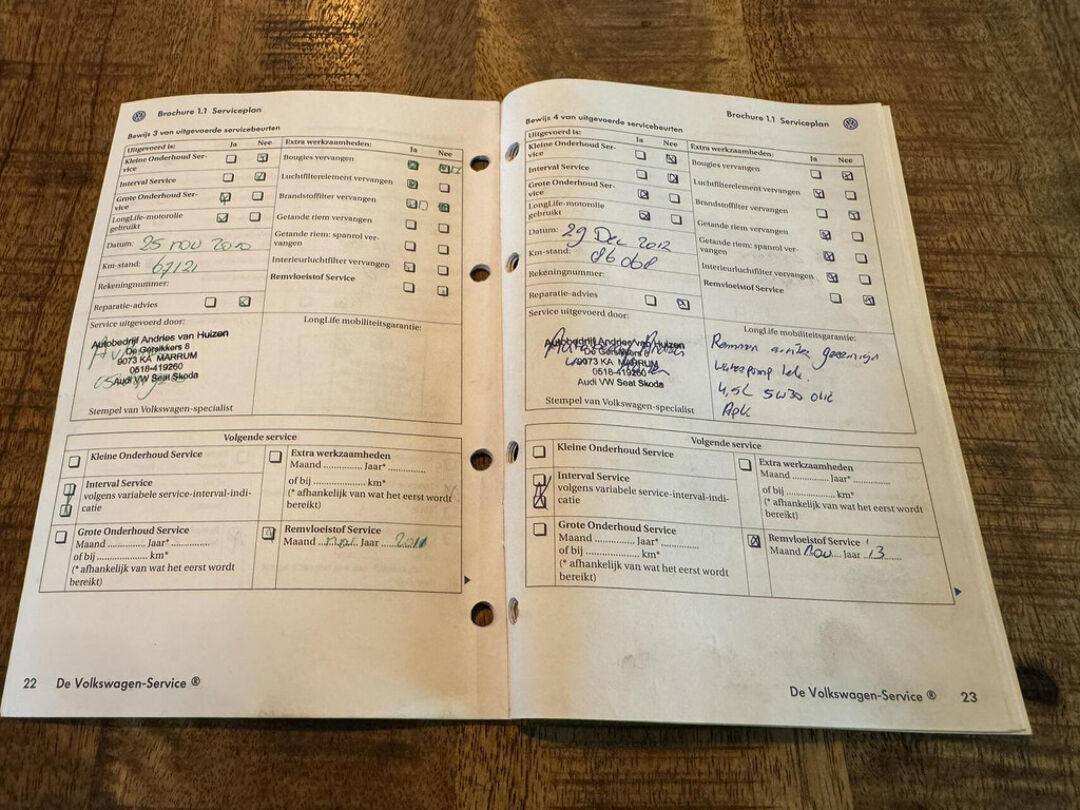 Brochure 1.1 Serviceplan
Bewijs 3 van uitgevoerde servicebeurten
Uitgevoerd is:
Ja
Nee
Kleine Onderhoud Ser-
vice
Interval Service
Grote Onderhoud Ser-
vice
LongLife-motorolie
gebruikt
Datum: 25 nov 2010
Km-stand: 67121
Rekeningnummer:
Reparatie-advies
Extra werkzaamheden:
Ja
Nee
Bougies vervangen
Luchtfilterelement vervangen
Brandstoffilter vervangen
Getande riem vervangen
Getande riem: spanrol ver-
vangen
Interieurluchtfilter vervangen
Remvloeistof Service
Service uitgevoerd door:
Autobedrijf Andries van Huizen
De Gersikkers 8
9073 KA MARRUM
0518-419260
Audi VW Seat Skoda
Stempel van Volkswagen-specialist
LongLife mobiliteitsgarantie:
Volgende service
Kleine Onderhoud Service
Interval Service
volgens variabele service-interval-indi-
catie
Grote Onderhoud Service
Maand ............ Jaar* ............
of bij .............. km*
(* afhankelijk van wat het eerst wordt
bereikt)
Extra werkzaamheden
Maand ............ Jaar* ............
of bij .............. km*
(* afhankelijk van wat het eerst wordt
bereikt)
Remvloeistof Service
Maand Jaar 2011
22 De Volkswagen-Service ®
Brochure 1.1 Serviceplan
Bewijs 4 van uitgevoerde servicebeurten
Uitgevoerd is:
Ja
Nee
Kleine Onderhoud Ser-
vice
Interval Service
Grote Onderhoud Ser-
vice
LongLife-motorolie
gebruikt
Datum: 29 Dec 2012
Km-stand: 86068
Rekeningnummer:
Reparatie-advies
Extra werkzaamheden:
Ja
Nee
Bougies vervangen
Luchtfilterelement vervangen
Brandstoffilter vervangen
Getande riem vervangen
Getande riem: spanrol ver-
vangen
Interieurluchtfilter vervangen
Remvloeistof Service
Service uitgevoerd door:
Autobedrijf Andries van Huizen
De Gersikkers 8
9073 KA MARRUM
0518-419260
Audi VW Seat Skoda
Stempel van Volkswagen-specialist
LongLife mobiliteitsgarantie:
Remmen
waterpomp lek.
4,5L 5W30 olie
Apk
Volgende service
Kleine Onderhoud Service
Interval Service
volgens variabele service-interval-indi-
catie
Grote Onderhoud Service
Maand ............ Jaar* ............
of bij .............. km*
(* afhankelijk van wat het eerst wordt
bereikt)
Extra werkzaamheden
Maand ............ Jaar* ............
of bij .............. km*
(* afhankelijk van wat het eerst wordt
bereikt)
Remvloeistof Service
Maand Nov Jaar 13
De Volkswagen-Service ® 23